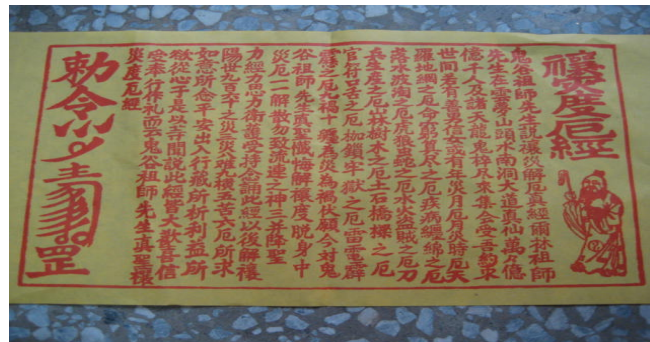 禳災度厄經
鬼谷祖師先生說禳災解厄真經爾林祖師
先生在雲夢山頭水南洞大道真仙萬々億
億千人及諸天龍鬼梓尽來集会受吾約束
世間若有善男信女或有年災月厄日災時厄天
羅地網之厄命窮算尽之厄疾病纏綿之厄
落水波濤之厄虎狼蛇之厄水火盜賊之厄刀
兵產之厄山林樹木之厄土石橋樑之厄
官符口舌之厄枷鎖牢獄之厄雷電霹
之厄
谷祖師先生或聖懺悔解禳度脫身中
災厄一解散勿致流連之神三並降聖
力經
功力衛護受持念誦此經以後解禳
陽世九百
之災災难九橫五苦六厄所求
如意所念
字出入行藏所祈利益所
欲從心于是以
聞說此經皆大歡喜信
受奉行作礼而云鬼谷祖師先生真聖禳
災度厄經
勅令
罡